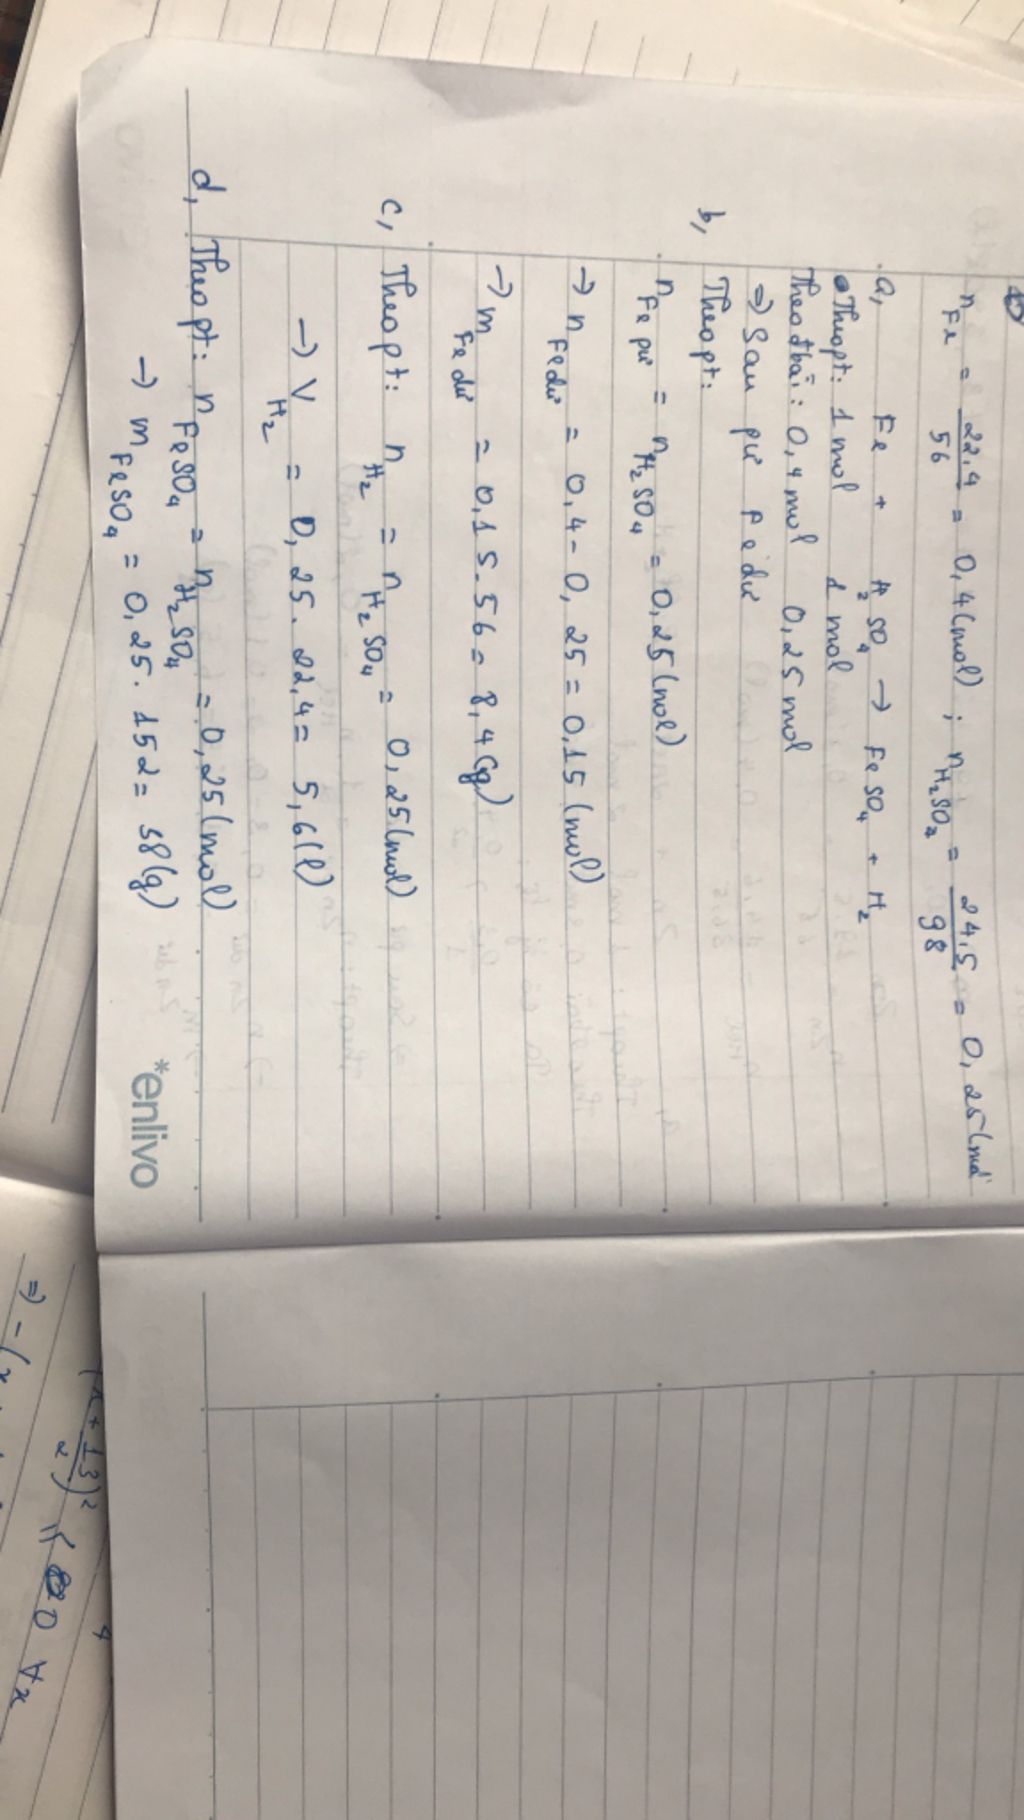 n Fe = 22,4 / 56 = 0,4 (mol) ; n H₂SO₄ = 24,5 / 98 = 0,25 (mol
a, Fe + H₂SO₄ → FeSO₄ + H₂
Theo pt: 1 mol 1 mol
Theo đbài: 0,4 mol 0,25 mol
⇒ Sau pư Fe dư
b, Theo pt:
n Fe pư = n H₂SO₄ = 0,25 (mol)
→ n Fe dư = 0,4 - 0,25 = 0,15 (mol)
→ m Fe dư = 0,15.56 = 8,4 (g)
c, Theo pt: n H₂ = n H₂SO₄ = 0,25 (mol)
→ V H₂ = 0,25. 22,4 = 5,6 (l)
d, Theo pt: n FeSO₄ = n H₂SO₄ = 0,25 (mol)
→ m FeSO₄ = 0,25. 152 = 38 (g)
*enlivo
(x + 13/2)²
0 ∀x
⇒ - (x